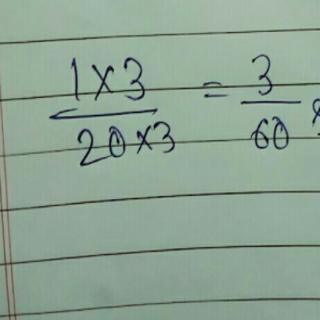 1×3 / 20×3 = 3 / 60